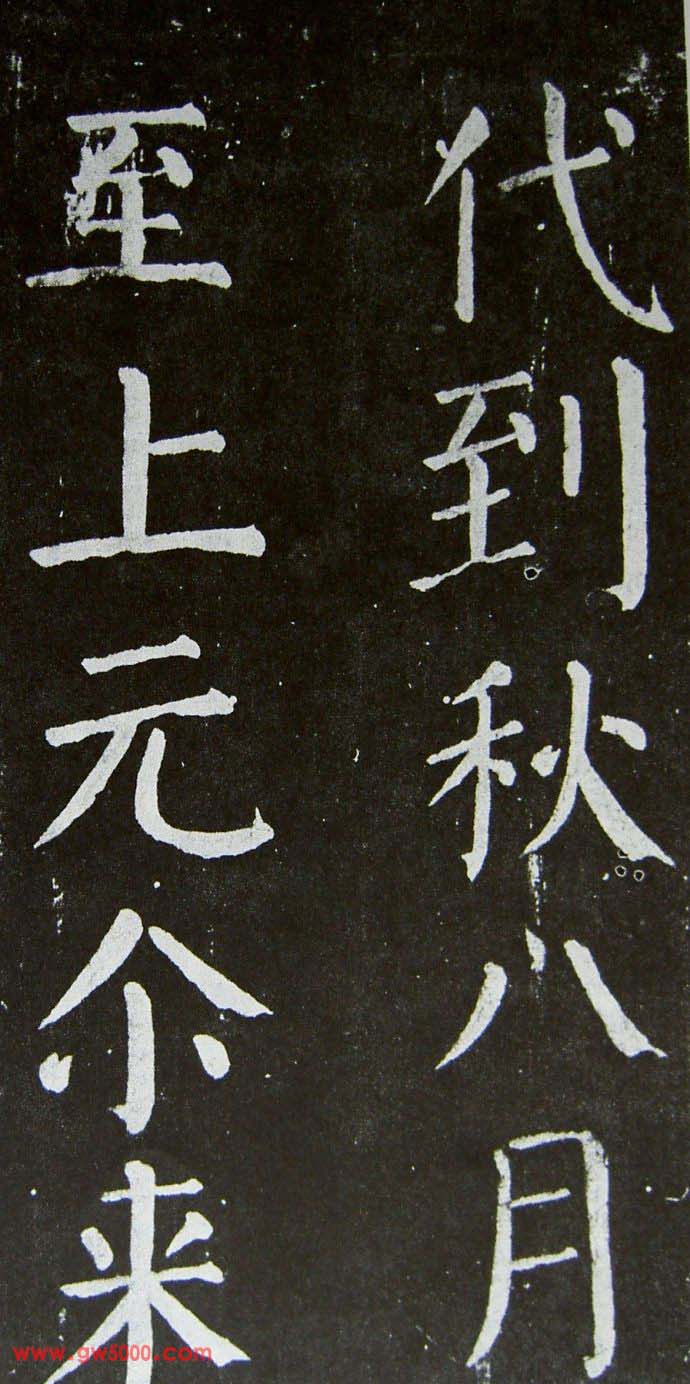 代到秋八月
至上元尒来
www.gw5000.com